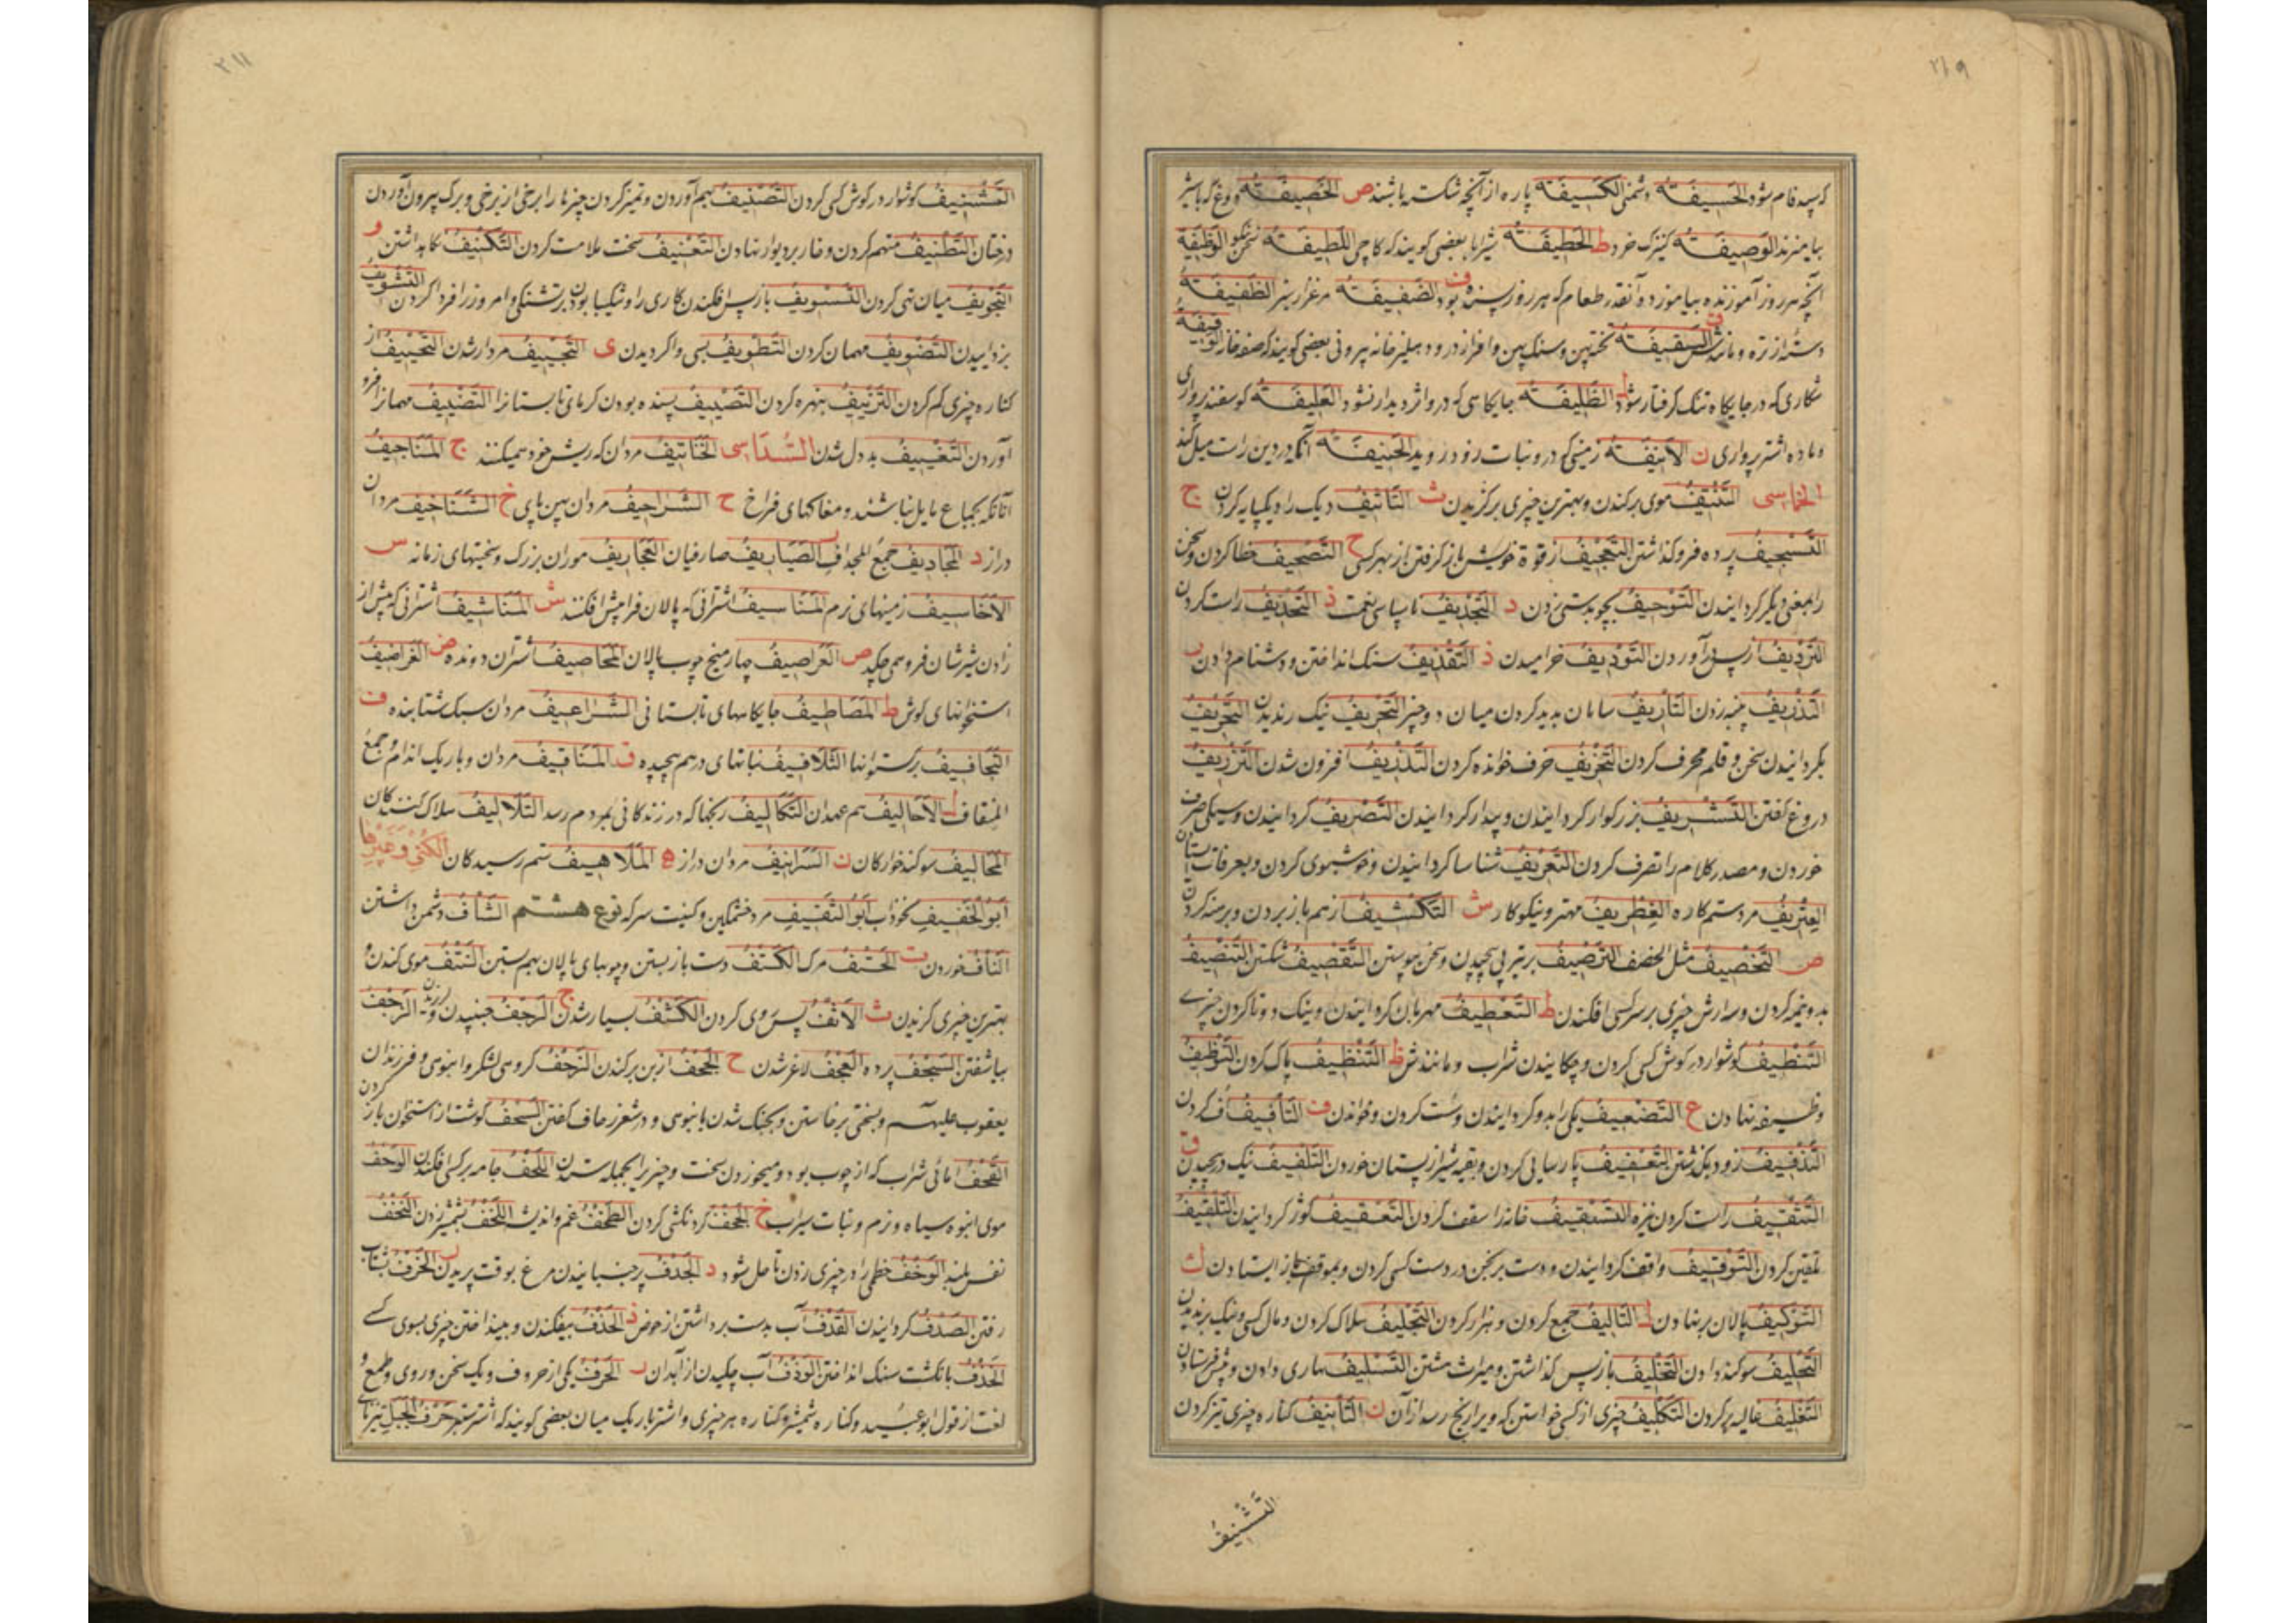 ۲۱۹
که سپید فام شود الحَسیفَة دشمنی الکَسیفَة پاره از آنچه شکسته باشند ص الخَصیفَة دوغ که با شیر
بیامیزند الوَصیفَة کنیزک خرد ط الخَطیفَة بعضی گویند که کاچی اللَّطیفَة سخن نیکو الوَظیفَة
آنچه هر روز آموزنده بیاموزد و آنقدر طعام که هر روز بسنده بود ف الضَّفیفَة مرغزار سبز الظَّفیفَة
دسته از تره و مانندش ق السَّقیفَة تخته پهن و سنگ پهن و افراز در و دهلیز خانه بیرونی بعضی گویند که صفه خانه
شکاری که در جایگاه تنگ گرفتار شود ل الظَّلیفَة جایگاهی که درو اثر دیدار نشود العَلیفَة گوسفند پرواری
و ماده اشتر پرواری ن الاَنیفَة زمینی که درو نبات زود روید الحَنیفَة آنکه در دین راست میل کند
الخماسی التَّنتیف موی برکندن و بهترین چیزی برگزیدن ث التّاثیف دیگ را دیگپایه کردن ج
التَّسجیف پرده فروگذاشتن التَّعجیف از قوة خویش باز گرفتن از بهر کسی ح التَّصحیف خطا کردن و سخن
را بمعنی دیگر گردانیدن التَّوحیف بچوبدستی زدن د التَّجدیف ناسپاسی نعمت ذ التَّحذیف راست کردن
التَّردیف از پس درآوردن التَّودیف خرامیدن ذ التَّقذیف سنگ انداختن و دشنام دادن ر
التَّذریف پنبه زدن التَّأریف سامان پدید کردن میان دو چیز التَّجریف نیک رندیدن التَّحریف
بگردانیدن سخن و قلم محرف کردن التَّخریف خرف خوانده کردن التَّذریف افزون شدن التَّزریف
دروغ گفتن التَّشریف بزرگوار گردانیدن و پیدار گردانیدن التَّصریف گردانیدن و سیکی صرف
خوردن و مصدر کلام را تصرف کردن التَّعریف شناسا گردانیدن و خوشبوی کردن و بعرفات ایستادن
العِتریف مرد ستمکاره الغِطریف مهتر و نیکوکار ش التَّکشیف از هم باز بردن و برهنه کردن
ص التَّخصیف مثل الخصف التَّرصیف برتیر پی پیچیدن و سخن پیوستن التَّقصیف شکستن التَّنصیف
بدو نیمه کردن و سه ارش چیزی بر سر کسی افکندن ط التَّعطیف مهربان گردانیدن و نیک دوتا کردن چیزی
التَّنطیف گوشوار در گوش کسی کردن و چکانیدن شراب و مانندش ظ التَّنظیف پاک کردن التَّوظیف
وظیفه نهادن ع التَّضعیف یکی را بدو گردانیدن و سست کردن و خواندن ف التَّأفیف اف کردن
التَّذفیف زود بکشتن التَّعفیف پارسایی کردن و بقیه شیر از پستان خوردن التَّلفیف نیک درپیچیدن ق
التَّثقیف راست کردن نیزه التَّسقیف خانه را سقف کردن التَّعقیف کوژ گردانیدن التَّلقیف
تلقین کردن التَّوقیف واقف گردانیدن و دست برنجن در دست کسی کردن و بموقف باز ایستادن ک
التَّوکیف پالان برنهادن ل التَّألیف جمع کردن و هزار کردن التَّجلیف هلاک کردن و مال کسی نیک برندیدن
التَّحلیف سوگند دادن التَّخلیف بازپس گذاشتن و میراث هشتن التَّسلیف نهاری دادن و پیش فرستادن
التَّغلیف غالیه پر کردن التَّکلیف چیزی از کسی خواستن که ویرا رنج رسد از آن ن التَّأنیف کناره چیزی تیز کردن
التَّشنیف
۲۱۱
التَّشنیف گوشوار در گوش کسی کردن التَّصنیف بهم آوردن و تمییز کردن چیزها را برخی از برخی و برگ بیرون آوردن
درختان التَّطنیف متهم کردن و خار بر دیوار نهادن التَّعنیف سخت ملامت کردن التَّکنیف نگاهداشتن و
التَّجویف میان تهی کردن التَّسویف بازپس افکندن کاری را و شکیبا بودن برتشنگی و امروز را فردا کردن التَّشویف
بزداییدن التَّضویف مهمان کردن التَّطویف بسی واگردیدن ی التَّجییف مردار شدن التَّحییف از
کناره چیزی کم کردن التَّزییف نبهره کردن التَّصییف بسنده بودن گرمای تابستانرا التَّضییف مهمانرا فرو
آوردن التَّغییف بددل شدن السُّداسی الخَناتیف مردان که ریش خود همیکنند ج المَناجیف
آنانکه بجماع مایل نباشند و مغاکهای فراخ ح الشَّراحیف مردان پهن پای خ الشَّناخیف مردان
دراز د المَجادیف جمع المجداف ر الصَّیاریف صارفیان العَجاریف موران بزرگ و سختیهای زمانه س
الاَخاسیف زمینهای نرم المَناسیف اشترانی که پالان فراپیش افکنند ش المَناشیف اشترانی که پیش از
زادن شیرشان فرو همی چکد ص العَراصیف چهار میخ چوب پالان المَحاصیف اشتران دونده ض الغَراضیف
استخوانهای گوش ط المَصاطیف جایگاههای تابستانی الشَّراعیف مردان سبک شتابنده ف
التَّجافیف برگستوانها التَّلافیف نباتهای درهم پیچیده ق المَناقیف مردان باریک اندام و جمع
المِنقاف ل الاَحالیف هم عهدان التَّکالیف رنجها که در زندگانی بمردم رسد التَّلالیف هلاک کنندگان
المَحالیف سوگند خوارگان ن السَّرانیف مردان دراز ه المَلاهیف ستم رسیدگان الکُنی وغیرها
اَبوالخَفیف کخوذاب اَبوالثَّقیف مرد خشمگین و کنیت سرکه نوع هشتم الشّأف دشمن داشتن
النّأف خوردن ت الحَتف مرگ الکَتف دست باز بستن و چوبهای پالان بهم بستن النَّتف موی کندن و
بهترین چیزی گزیدن ث الاَثف پس روی کردن الکَثف بسیار شدن ج الرَّجف جنبیدن و لرزیدن
بیاشفتن السَّجف پرده العَجف لاغر شدن ح الجَحف از بن برکندن الزَّحف گروهی لشکر و انبوهی و فرزندان
یعقوب علیهم و بسختی برخاستن و بجنگ شدن بانبوهی و در شعر زحاف گفتن السَّحف گوشت از استخوان باز کردن
القِحف انائی شراب که از چوب بود و میخوردن سخت و چیز را بجمله ستدن اللَّحف جامه بر کسی افکندن الوَحف
موی انبوه سیاه و نرم و نبات سیراب خ الجَخف گردنکشی کردن الطَّخف غم و اندیشه اللَّخف بشمشیر زدن النَّخف
نفس بلند الوَخف خطمی را در چیزی زدن تا حل شود د الجَدف پر جنبانیدن مرغ بوقت پریدن ر
رفتن الصَّدف گردانیدن القَدف آب بدست برداشتن از حوض ذ الحَذف بیفکندن و بینداختن چیزی بسوی کسی
الخَذف بانگشت سنگ انداختن الوَذف آب چکیدن ر الحَرف یکی از حروف و یک سخن و روی و طمع و
لغت از قول ابوعبید و کناره شمشیر و کناره هر چیزی و اشتر باریک میان بعضی گویند که اشتر ستبر حَرف الجَبَل